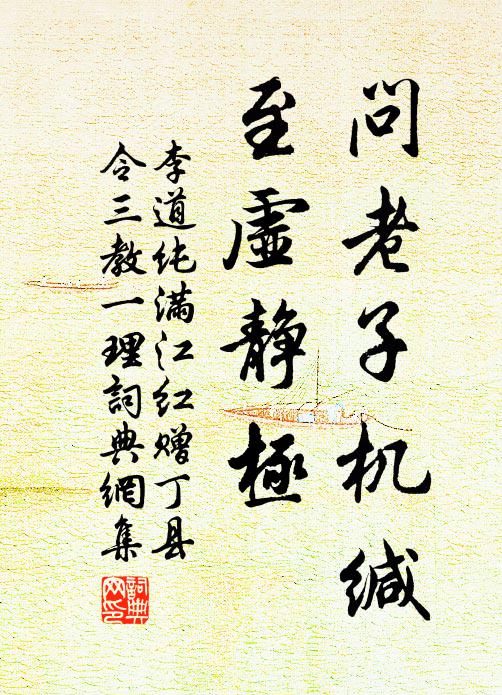 问老子机缄
至虚静極
李道纯满江红赠丁县
令三教一理詞典網集